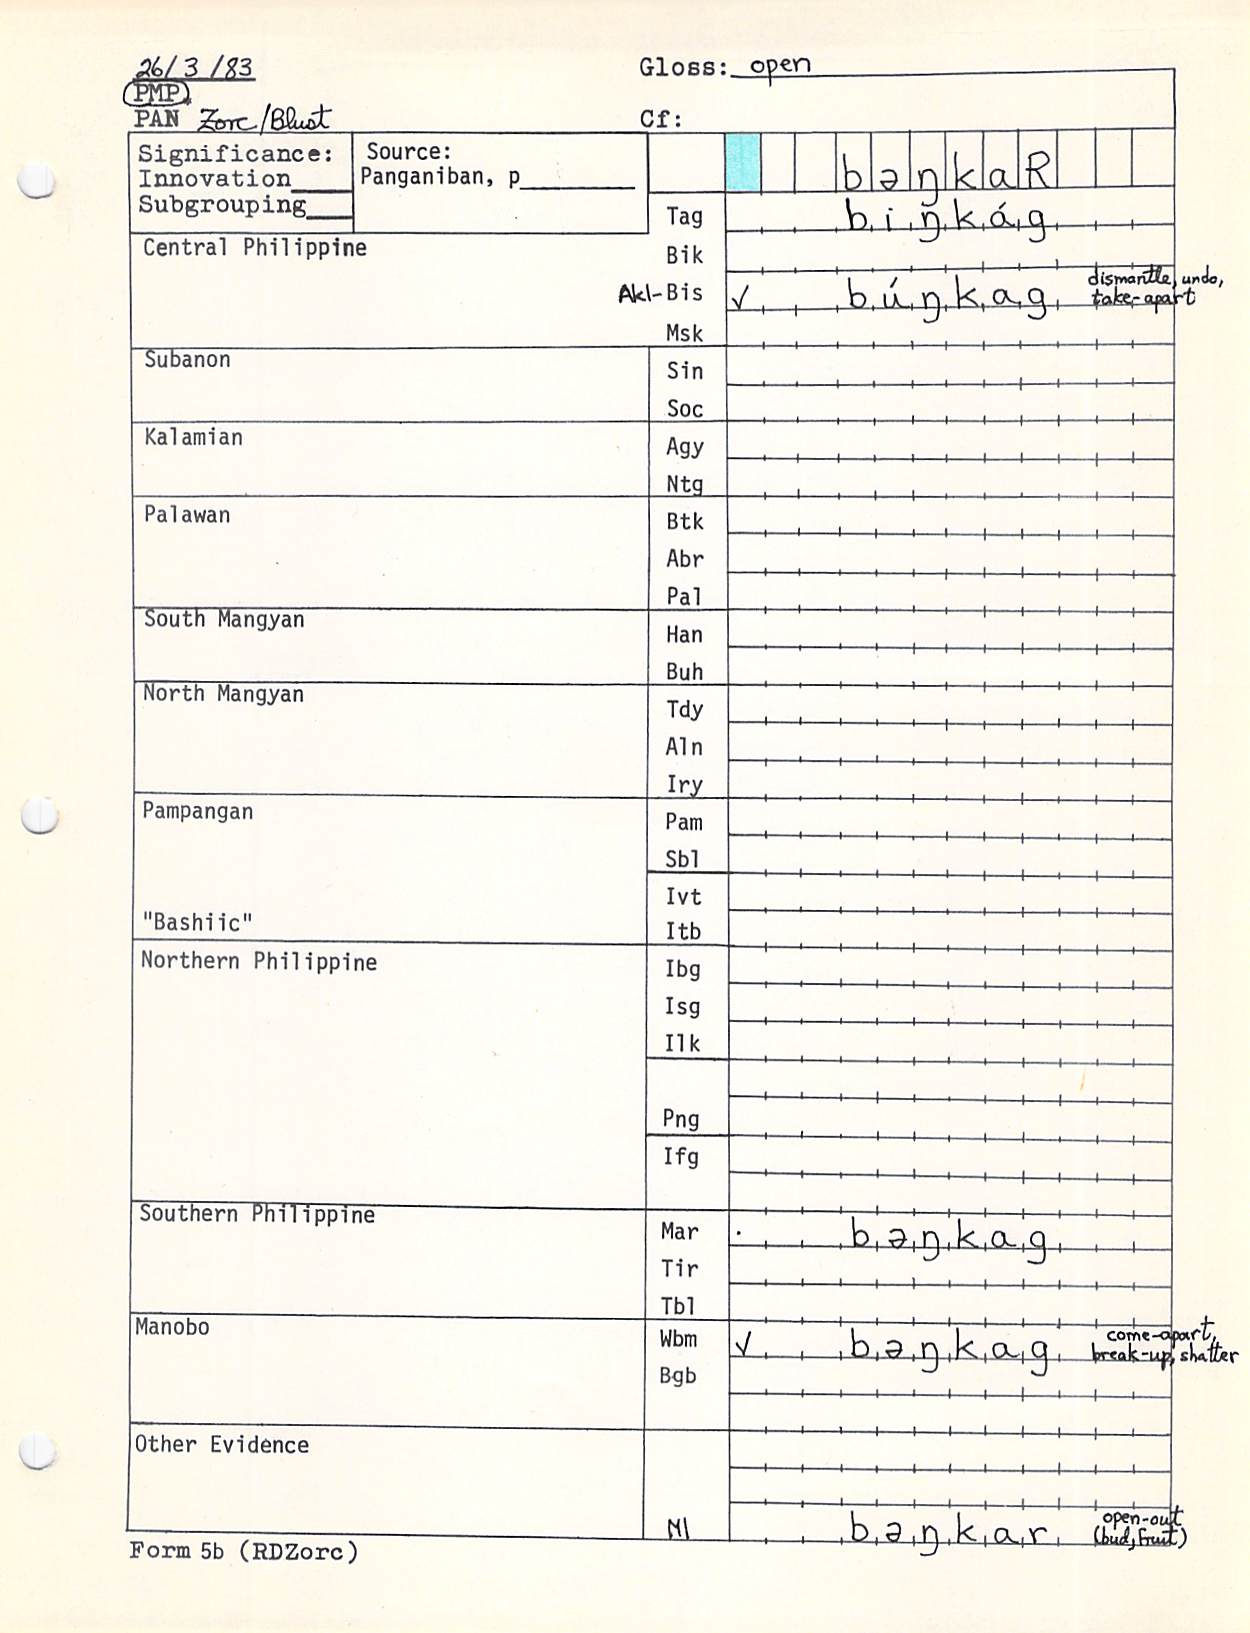 26/3/83
Gloss: open
PMP
PAN Zorc/Blust
Cf:
Significance:
Innovation____
Subgrouping___
Source:
Panganiban, p________
bəŋkaR
Tag biŋkág
Central Philippine
Bik
Akl-Bis ✓ búŋkag dismantle, undo,
take-apart
Msk
Subanon
Sin
Soc
Kalamian
Agy
Ntg
Palawan
Btk
Abr
Pal
South Mangyan
Han
Buh
North Mangyan
Tdy
Aln
Iry
Pampangan
Pam
Sbl
Ivt
"Bashiic"
Itb
Northern Philippine
Ibg
Isg
Ilk
Png
Ifg
Southern Philippine
Mar . bəŋkag
Tir
Tbl
Manobo
Wbm ✓ bəŋkag come-apart,
break-up, shatter
Bgb
Other Evidence
Ml bəŋkar open-out
(bud, fruit)
Form 5b (RDZorc)